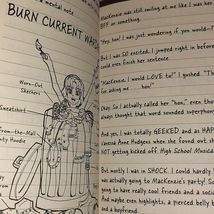 a mental note
BURN CURRENT WARD
Worn-Out
Skechers
Sweatshirt
From-the-Mall
Hoodie
From
MacKenzie was still smiling at me like I was her
BFF or something.
"Hey, hon! I was just wondering if you would—"
But I was SO excited, I jumped right in before
could even finish her sentence.
"MacKenzie, I would LOVE to!" I gushed. "Th
for asking me . . . hon!"
Okay. So I actually called her "hon," even thou
always thought that word sounded superphon
And you, I was totally GEEKED and as HAP
Vanessa Anne Hudgens when she found out s
NOT getting kicked off High School Musical
But mostly I was in SHOCK. I could hardly
was actually going to MacKenzie's party! S
going to have really cool friends and a social
And maybe even highlights, a pierced belly b
and a boyfriend.